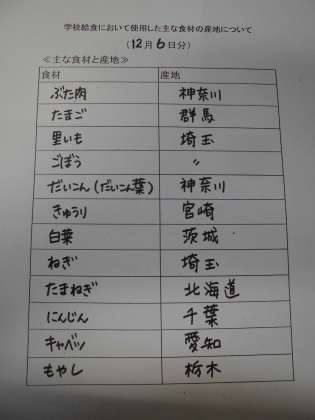 学校給食において使用した主な食材の産地について
(12月6日分)
≪主な食材と産地≫
食材 産地
ぶた肉 神奈川
たまご 群馬
里いも 埼玉
ごぼう 〃
だいこん(だいこん葉) 神奈川
きゅうり 宮崎
白菜 茨城
ねぎ 埼玉
たまねぎ 北海道
にんじん 千葉
キャベツ 愛知
もやし 栃木